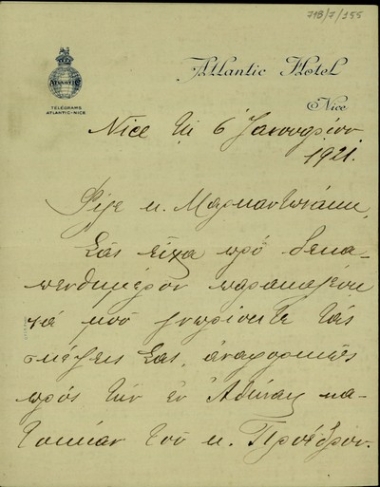 71B/7/155
Atlantic Hotel
Nice
TELEGRAMS
ATLANTIC-NICE
Nice τῇ 6 Ἰανουαρίου
1921.
Φίλε κ. Μαρκαντωνάκη,
Σᾶς εἶχα πρὸ δεκα-
πενθημέρου παρακαλέσει
νά μοῦ γνωρίσητε τὰς
σκέψεις Σας, ἀναφορικῶς
πρὸς τὴν ἐν Ἀθήναις κα-
τοικίαν τοῦ κ. Προέδρου.